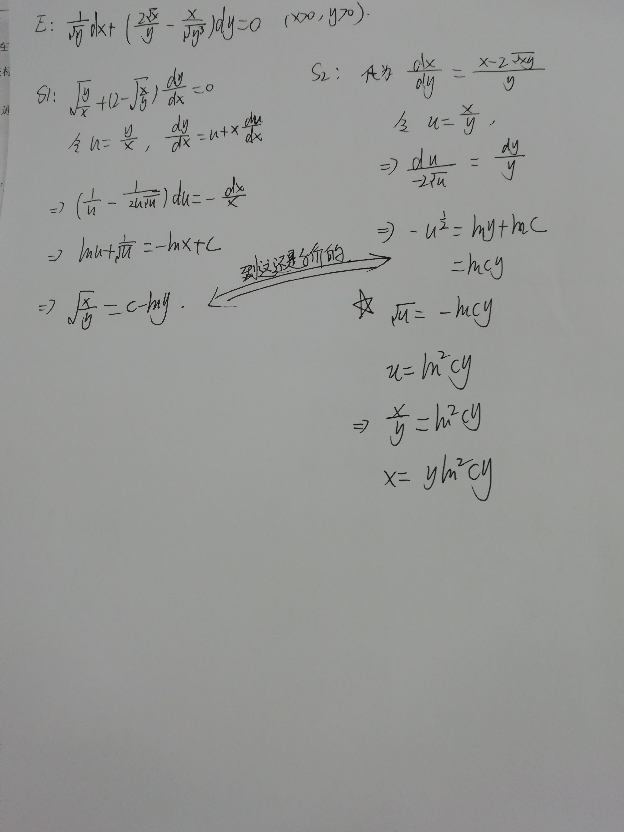 E: 1/√y dx + (2√x/y − x/√y³)dy = 0 (x>0, y>0).
S1: √(y/x) + (2−√(x/y)) dy/dx = 0
令 u = y/x , dy/dx = u + x du/dx
⇒ (1/u − 1/(2u√u)) du = − dx/x
⇒ lnu + 1/√u = −lnx + C
⇒ √(x/y) = c − lny .
到这还是等价的
S2: 化为 dx/dy = (x−2√xy)/y
令 u = x/y ,
⇒ du/(−2√u) = dy/y
⇒ −u^(1/2) = lny + lnC
= lncy
☆ √u = −lncy
u = ln²cy
⇒ x/y = ln²cy
x = yln²cy